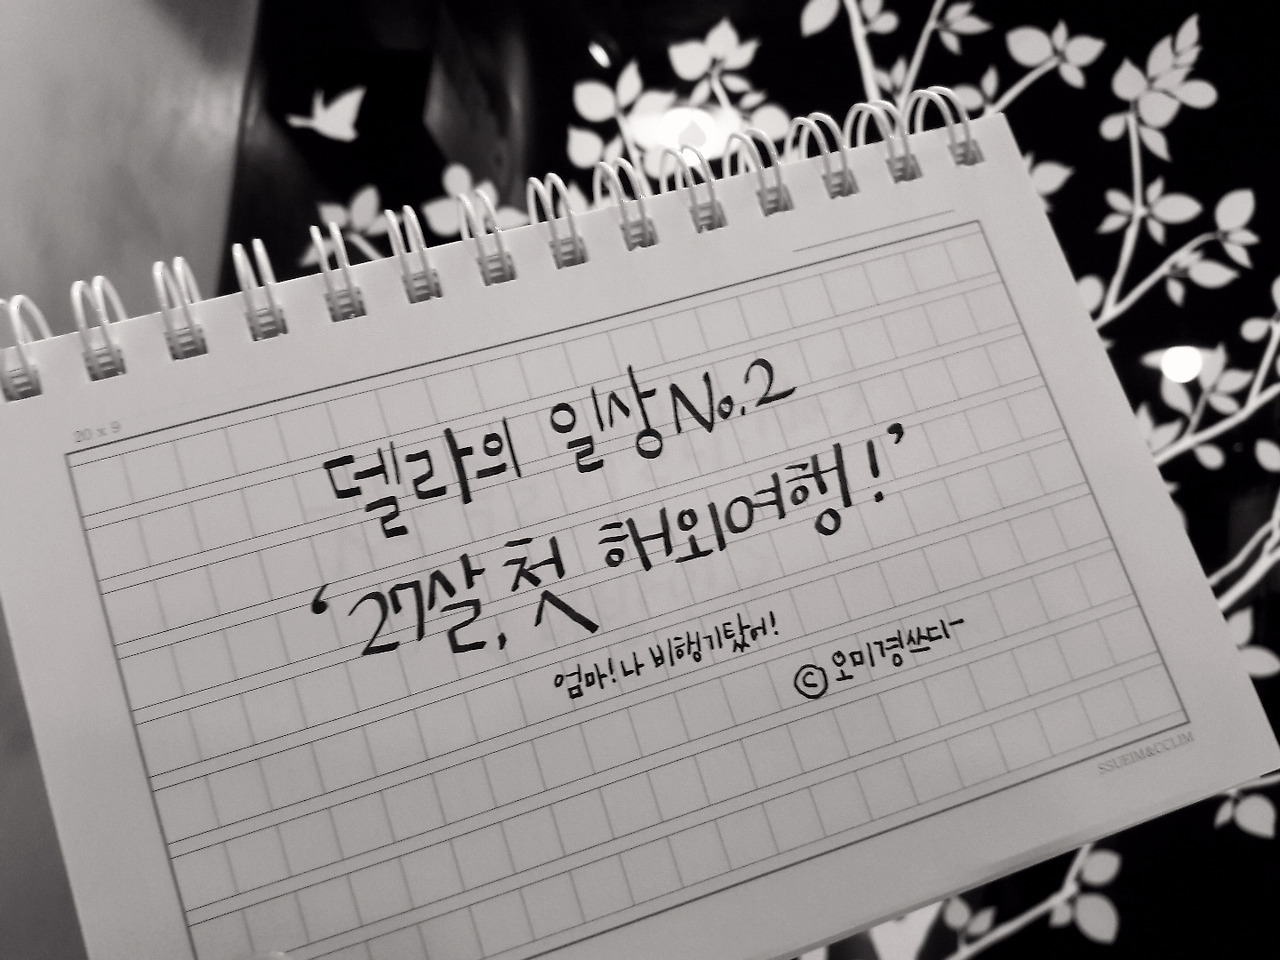 20 x 9
델라의 일상 No.2
'27살, 첫 해외여행!'
엄마! 나 비행기탔어!
ⓒ오미경쓰다-
SSUEIM&CCLIM